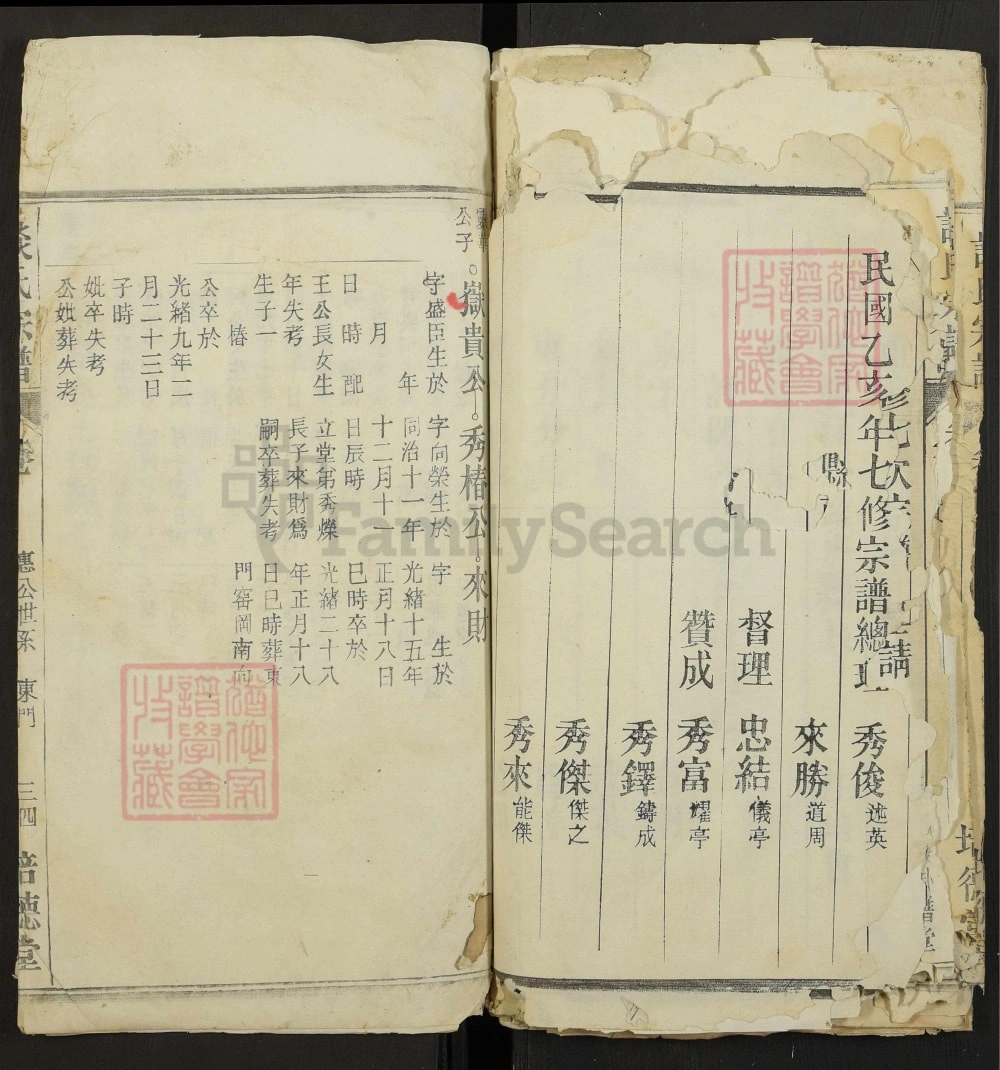 民國乙亥年七次修宗譜總
秀俊 述英
來勝 道周
督理 忠結 儀亭
贊成 秀富 耀亭
秀鐸 鑄成
秀傑 傑之
秀來 能傑
公子
嶽貴公
字盛臣生於
年
月
日 時 配
王公長女生
年失考
生子一
椿
公卒於
光緒九年二
月二十三日
子時
妣卒失考
公妣葬失考
秀椿公
字向榮生於
同治十一年
十二月十一
日辰時
立堂弟秀爍
長子來財爲
嗣卒葬失考
來財
字 生於
光緒十五年
正月十八日
巳時卒於
光緒二十八
年正月十八
日巳時葬東
門窑岡南向
氏宗譜
惠公世系 東門
三四
培德堂
猶他家
譜學會
收藏
猶他家
譜學會
收藏
FamilySearch